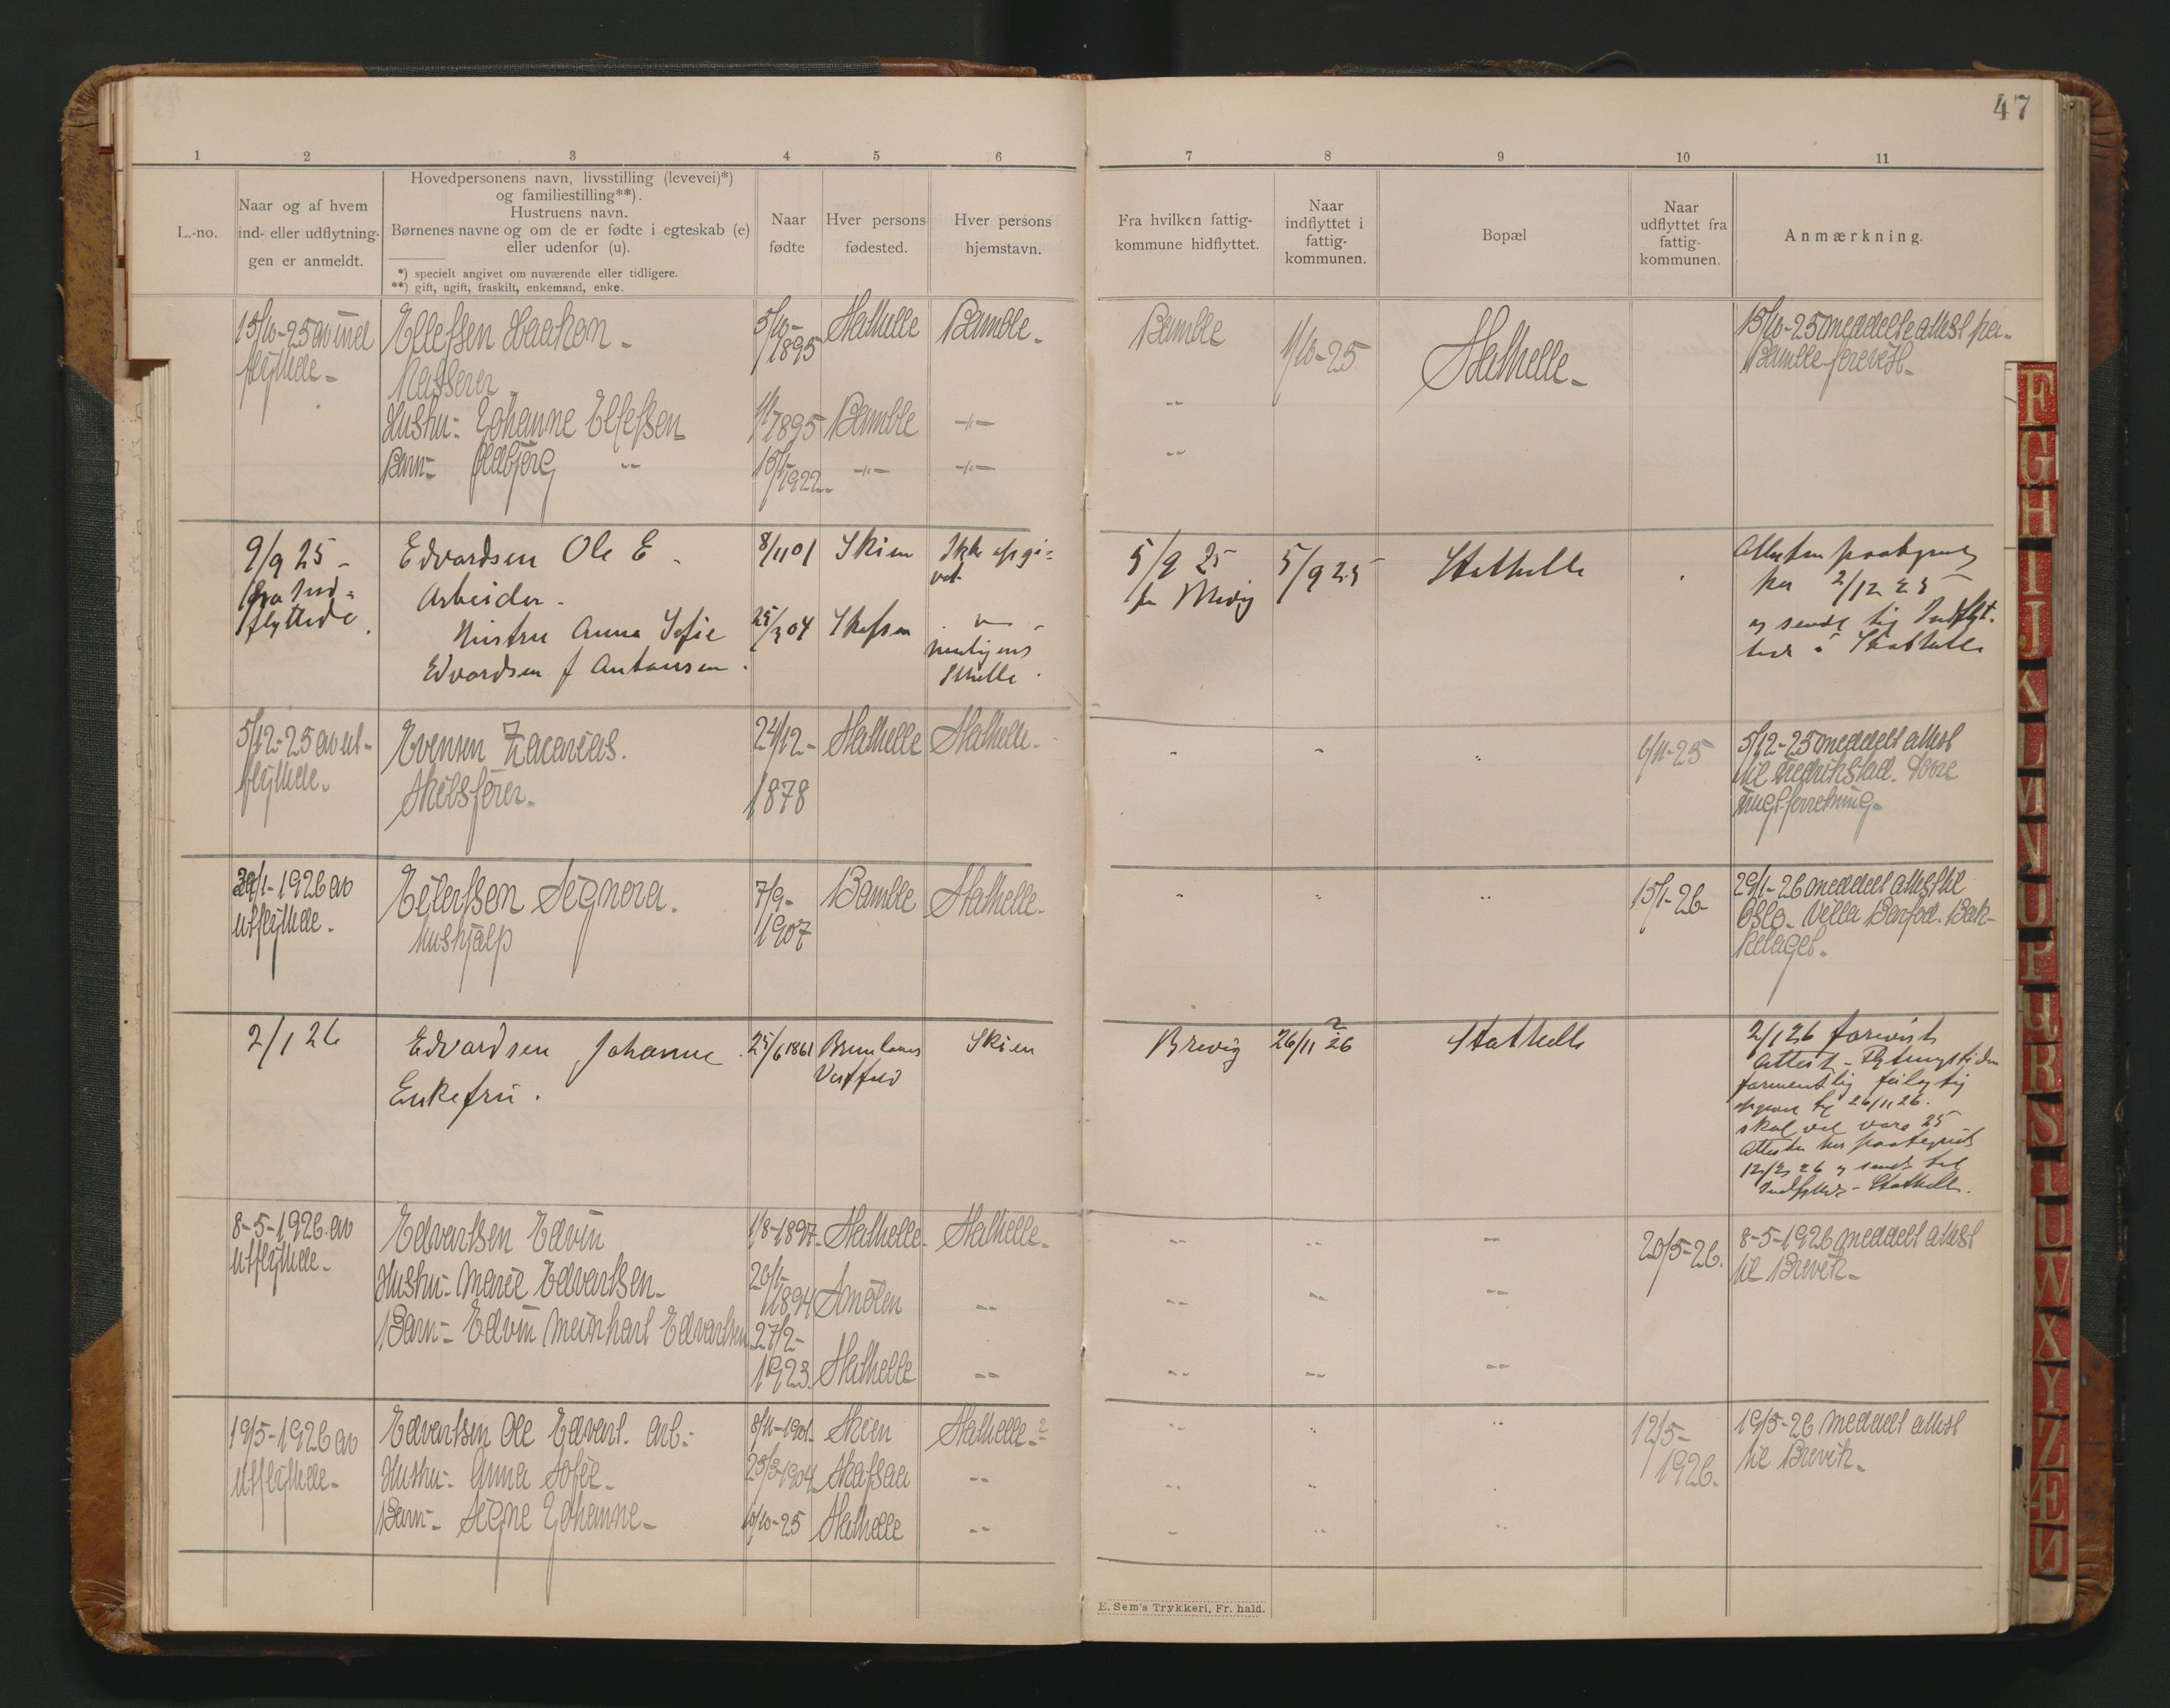 47
1 2 3 4 5 6 7 8 9 10 11
L.-no.
Naar og af hvem
ind- eller udflytnin-
gen er anmeldt.
Hovedpersonens navn, livsstilling (levevei)*)
og familiestilling**).
Hustruens navn.
Børnenes navne og om de er fødte i egteskab (e)
eller udenfor (u).
*) specielt angivet om nuværende eller tidligere.
**) gift, ugift, fraskilt, enkemand, enke.
Naar
fødte
Hver persons
fødested.
Hver persons
hjemstavn.
Fra hvilken fattig-
kommune hidflyttet.
Naar
indflyttet i
fattig-
kommunen.
Bopæl
Naar
udflyttet fra
fattig-
kommunen.
Anmærkning.
15/10-25 av ind Ellefsen Haakon - 5/10- Stathelle Bamble - Bamble 1/10-25 Stathelle - 15/10-25 meddelte attest fra
flyttede - Kasserer 1895 Bamble forevist -
Hustru - Johanne Ellefsen 1895 Bamble -"- "
Barn - Oddbjørg " 1922 -"- -"- "
9/9 25 - Edvardsen Ole E - 8/11 01 Skien Ikke opgi- 5/9 25 5/9 25 Stathelle Attesten paategnet
fra Ind- Arbeider - vet fra Brevig her 2/12 25
flyttede. Hustru Anna Sofie 25/3 04 Skafsaa " og sendt
Edvardsen f Antonsen. Sthelle. i Stathelle
5/12-25 av ut- Evensen Zacarias. 24/12- Stathelle Stathelle - " " " 6/11-25 5/12-25 meddelt attest
flyttede - Skibsfører - 1878 til Fredrikstad.
forretning -
29/1-1926 av Eilertsen Signora. 7/9- Bamble Stathelle - " " " 15/1-26 29/1-26 meddelt attest til
Utflyttede - Hushjælp 1907 Oslo - Villa Barfod. Bæk-
kelaget -
2/1 26 Edvardsen Johanne 25/6 1861 Brunlanes Skien Brevig 26/11 26 ? Stathelle 2/1 26 forevist
Enkefru. Vestfold Attest -
opgivet til 26/11 26.
skal vel være 25
Attesten her paategnet
12/2 26 og sendt til
- Stathelle.
8-5-1926. av Edvartsen Edvin 1/8-1897 - Stathelle - Stathelle - " " " 20/5-26. 8-5-1926 meddelt attest
Utflyttede - Hustru - Marie Edvartsen - 20/1- 1894 Smölen " " " " til Brevik -
Barn - Edvin Meinhart Edvartsen 27/2- 1923 Stathelle " " " "
19/5-1926 av Edvartsen Ole Edvart. Arb - 8/11-1901 - Skien Stathelle - ? " " " 12/5- 1926. 19/5-26 meddelt attest
Utflyttede - Hustru - Anna Sofie - 25/3-1904 Skafsaa " " " " til Brevik -
Barn - Signe Johanne - 10/10-25 Stathelle " " " "
E. Sem's Trykkeri, Fr. hald.
F
G
H
I
J
K
L
M
N
O
P
Q
R
S
T
U
W
X
Y
Z
Æ